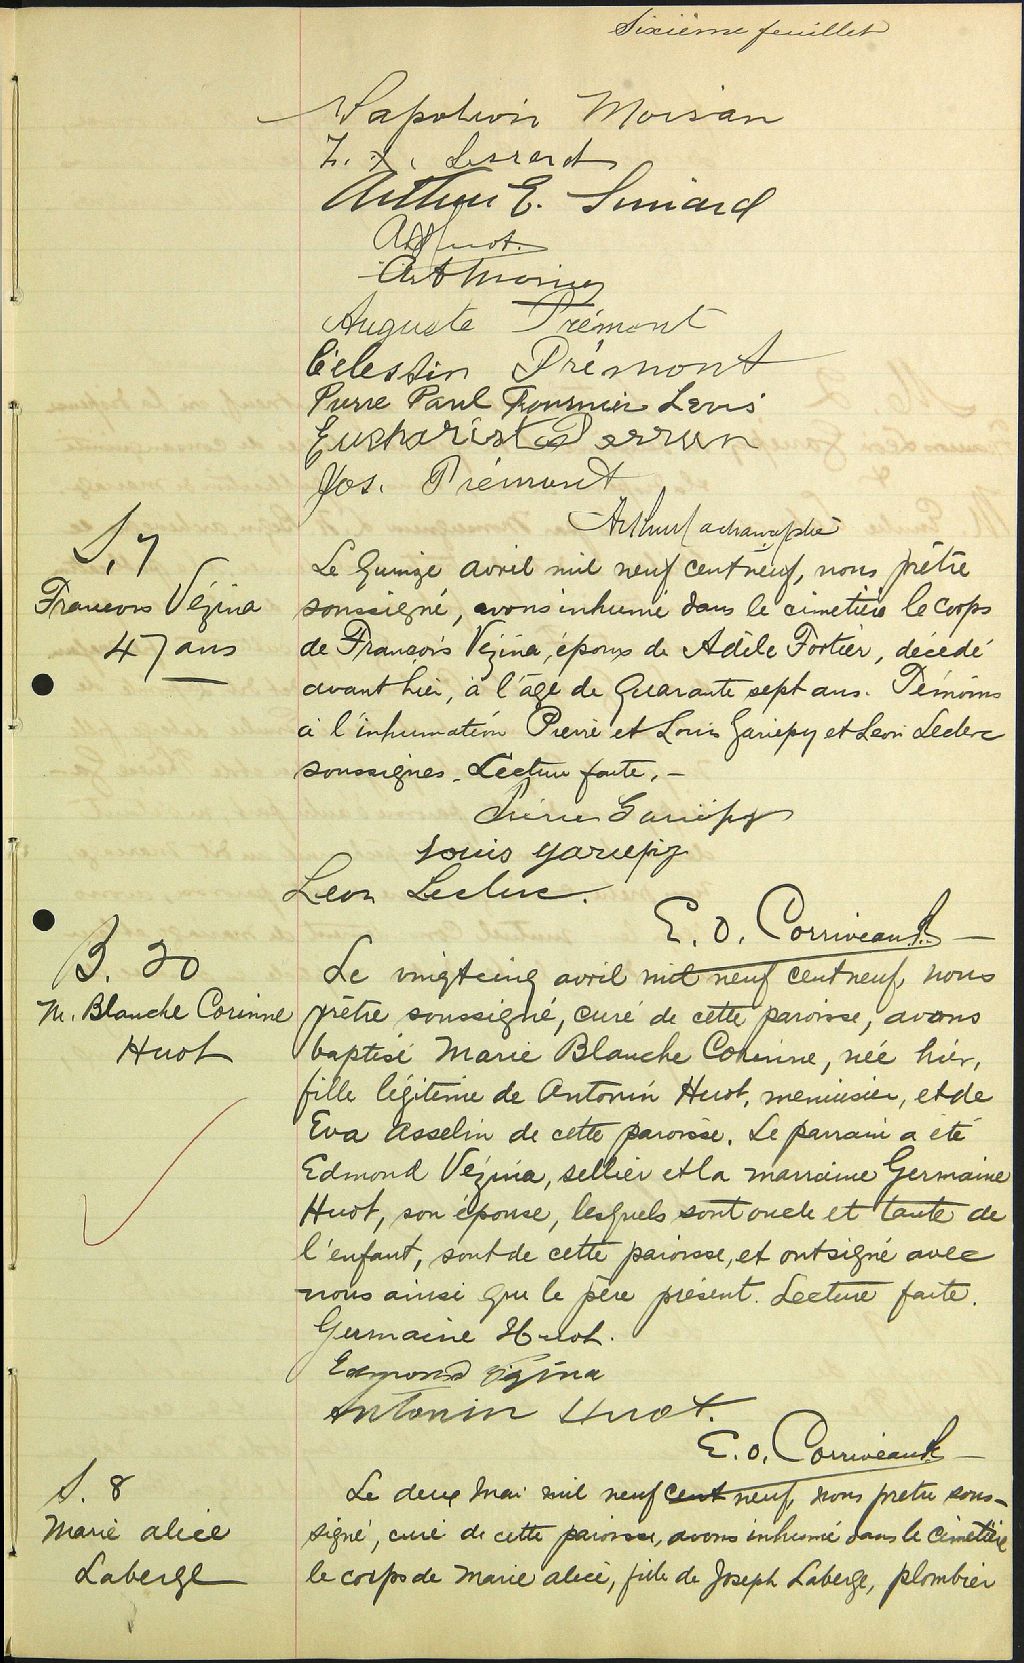 Sixième feuillet
Napoléon Moisan
Arthur E. Simard
Auguste Prémont
Célestin Prémont
Pierre Paul Fournier Levis
Euchariste Perron
Jos. Prémont
Arthur
S. 7
François Vézina
47 ans
Le quinze avril mil neuf cent neuf, nous prêtre
soussigné, avons inhumé dans le cimetière le corps
de François Vézina, époux de Adèle Fortier, décédé
avant hier, à l'âge de quarante sept ans. Témoins
à l'inhumation Pierre et Louis Gariépy et Léon Leclerc
soussignés. Lecture faite. –
Pierre Gariépy
Louis Gariépy
Leon Leclerc.
E. O. Corriveau, P. –
B. 20
M. Blanche Corinne
Huot
Le vingtcinq avril mil neuf cent neuf, nous
prêtre soussigné, curé de cette paroisse, avons
baptisé Marie Blanche Corinne, née hier,
fille légitime de Antonin Huot, menuisier, et de
Eva Asselin de cette paroisse. Le parrain a été
Edmond Vézina, sellier et la marraine Germaine
Huot, son épouse, lesquels sont oncle et tante de
l'enfant, sont de cette paroisse, et ont signé avec
nous ainsi que le père présent. Lecture faite.
Germaine Huot.
Edmond Vézina
Antonin Huot.
E. O. Corriveau, P. –
S. 8
Marie Alice
Laberge
Le deux Mai mil neuf cent neuf, nous prêtre sous-
signé, curé de cette paroisse, avons inhumé dans le cimetière
le corps de Marie Alice, fille de Joseph Laberge, plombier